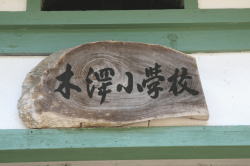 木澤小學校